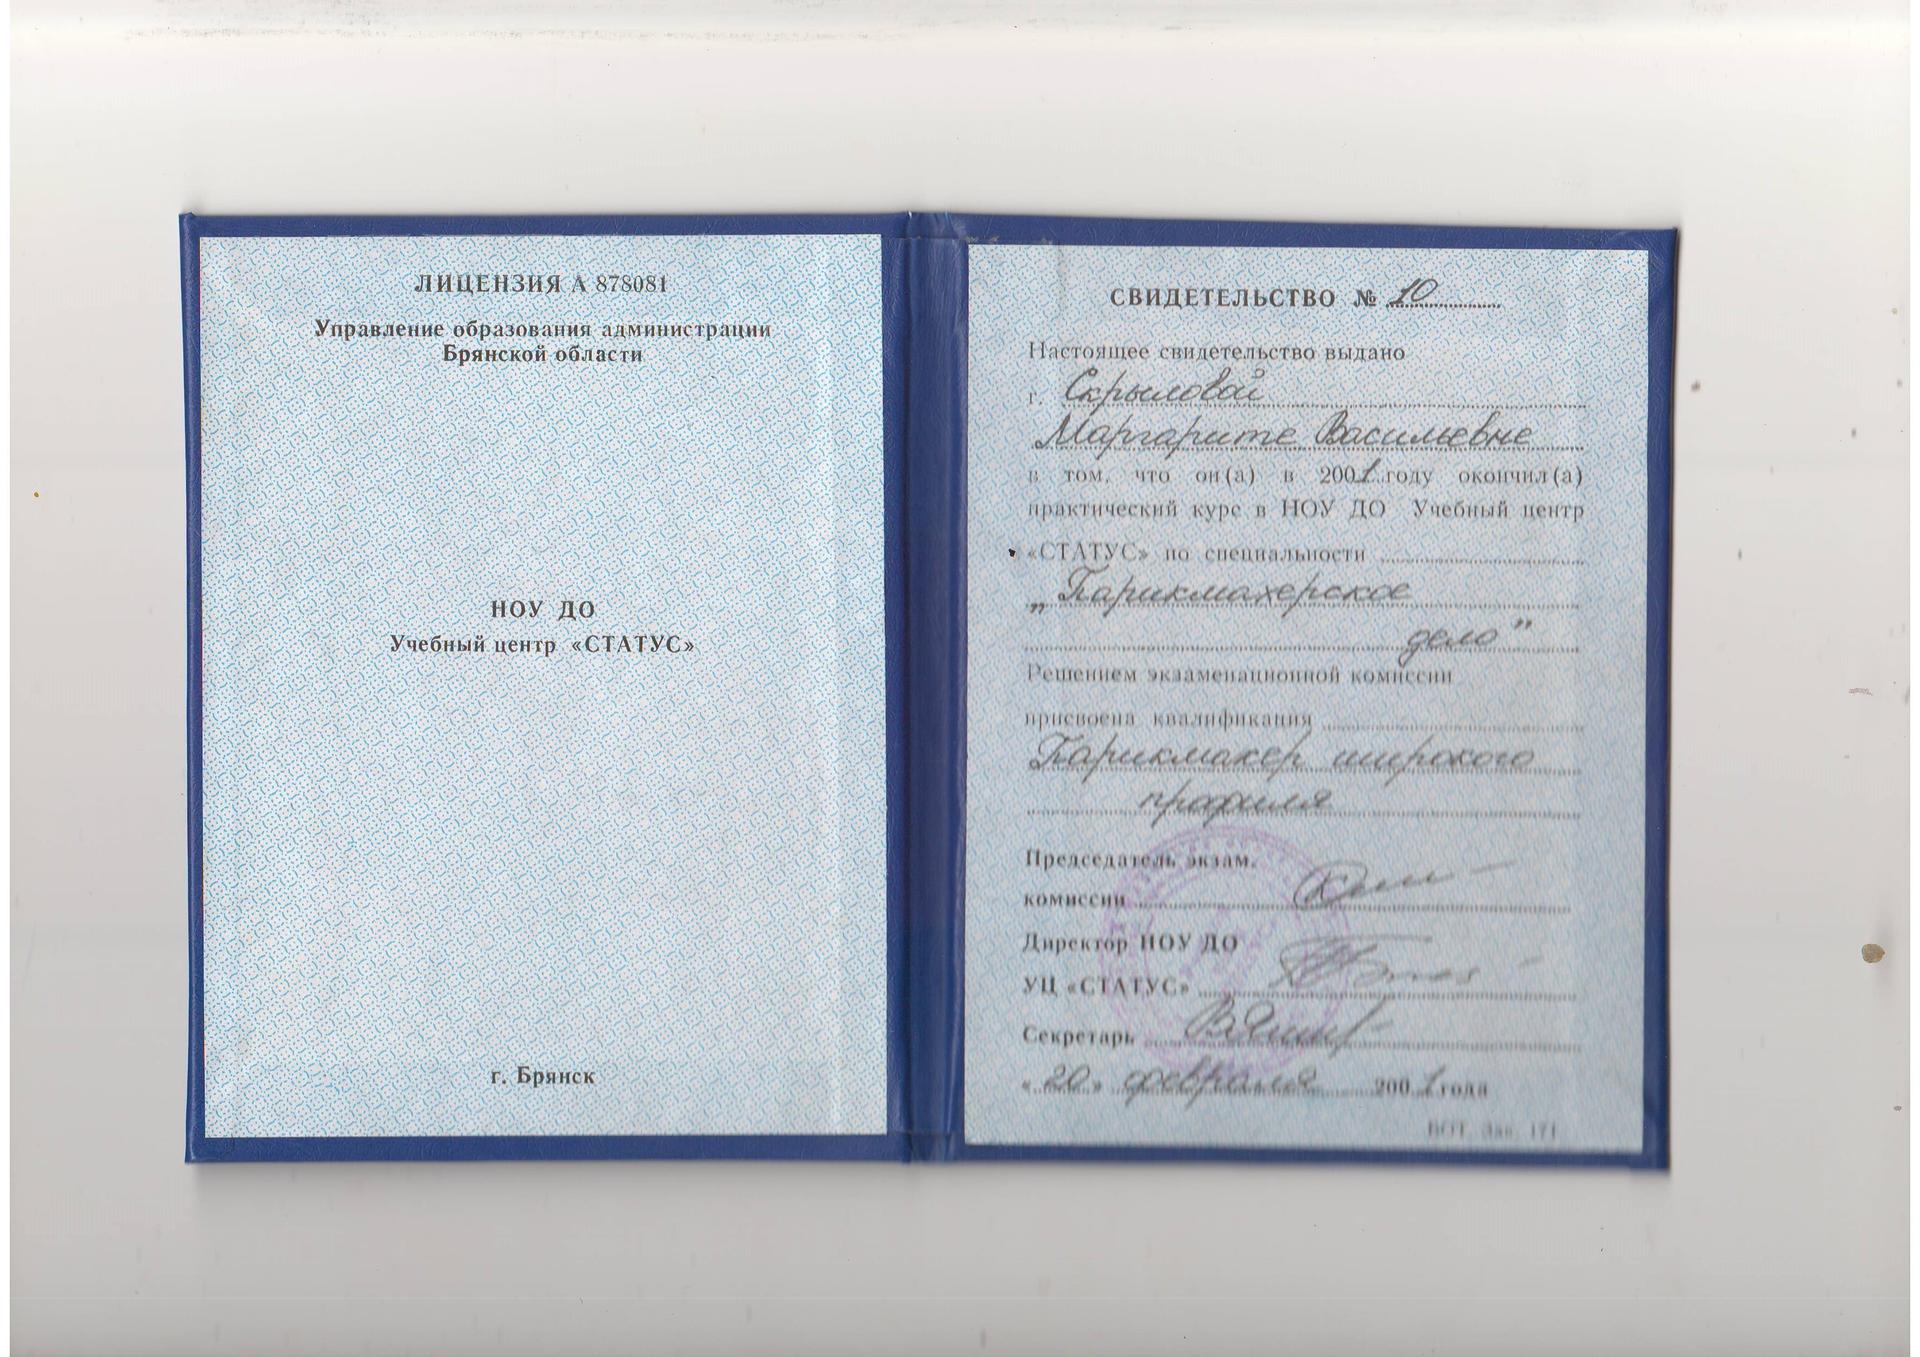 ЛИЦЕНЗИЯ А 878081
Управление образования администрации
Брянской области
НОУ ДО
Учебный центр «СТАТУС»
г. Брянск
СВИДЕТЕЛЬСТВО № 10
Настоящее свидетельство выдано
г. Скрыловой
Маргарите Васильевне
в том, что он(а) в 2001 году окончил(а)
практический курс в НОУ ДО Учебный центр
«СТАТУС» по специальности
„Парикмахерское
дело"
Решением экзаменационной комиссии
присвоена квалификация
Парикмахер широкого
профиля
Председатель экзам.
комиссии
Директор НОУ ДО
УЦ «СТАТУС»
Секретарь
«20» февраля 2001 года
Зак. 171